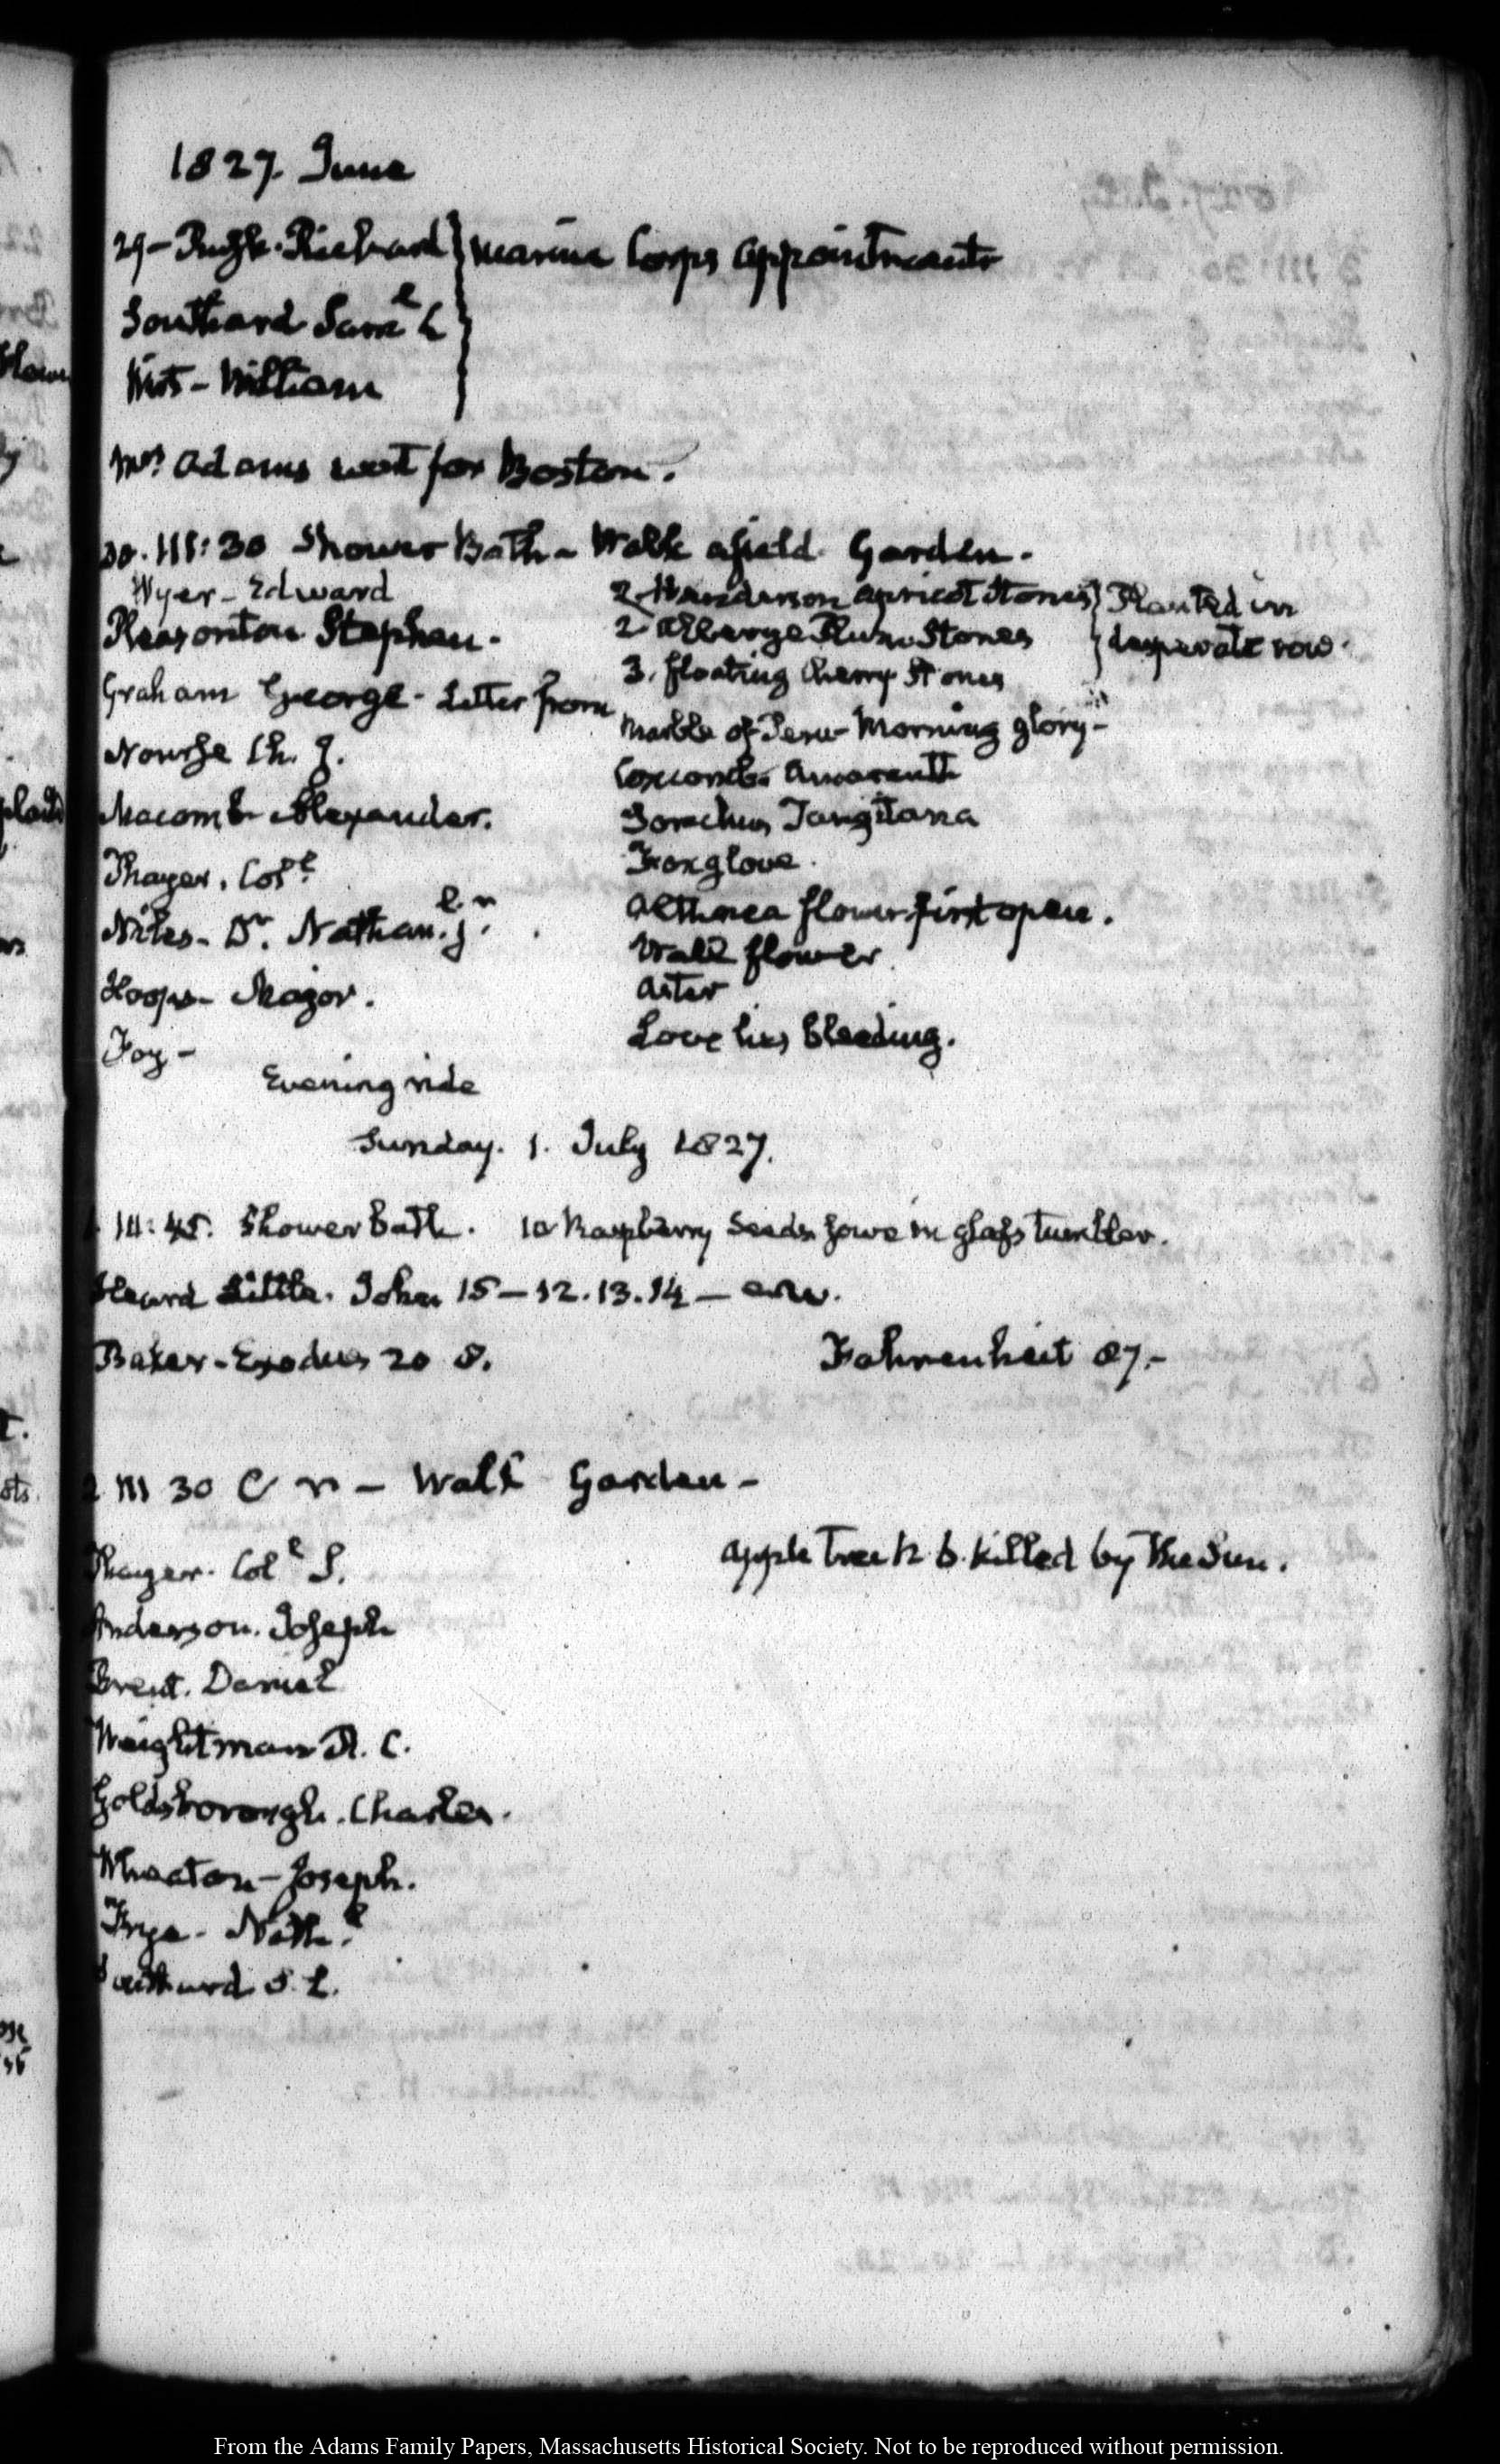 1827. June
29 - Pugh. Richard } Marine Corps appointments
Southard Sam.l L
Wirt - William
Mrs. Adams went for Boston.
30. III:30 Shower Bath - Walk afield. Garden.
Wyer - Edward
Pleasonton Stephen.
Graham George - Letter from
Nourse Ch. J.
Macomb Alexander.
Thayer. Col.l
Niles - Dr. Nathan.l jr.
Hoops - Major.
Foy -
2 Henderson apricot stones } Planted in
2 Alberge Plum Stones } desperate row.
3. floating Cherry Stones
Marble of Peru - Morning glory -
Coxcomb Amaranth
Sonchus Tangitana
Foxglove.
Althaea flower first open.
Wall flower
Aster
Love lies bleeding.
Evening ride
Sunday. 1. July 1827.
1 III:45. Shower bath. 10 Raspberry Seeds sowe in glass tumbler.
Heard Little. John 15 - 12.13.14 -
Baker - Exodus 20 8. Fahrenheit 87. -
2 III 30 C n - Walk Garden -
Thayer. Col.l S.
Apple tree k. b. killed by the Sun.
Anderson. Joseph
Brent. Daniel
Weightman R. C.
Goldsborough. Charles.
Wheaton - Joseph.
Frye - Nath.l
Southard S. L.
From the Adams Family Papers, Massachusetts Historical Society. Not to be reproduced without permission.